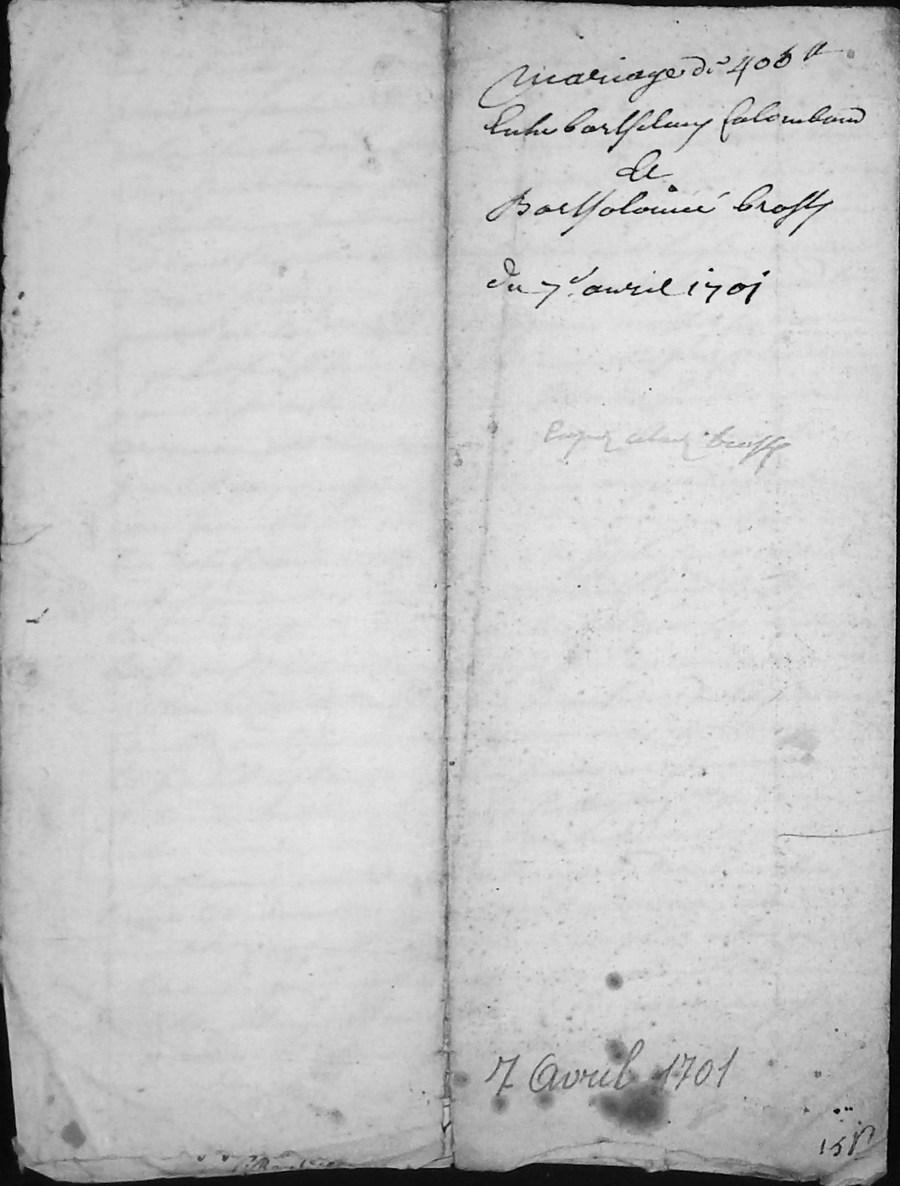 Mariage de 400 ₶
Entre barthelemy Colomband
Et
Bartholomié brosse
du 7e avril 1701
brosse
7 Avril 1701